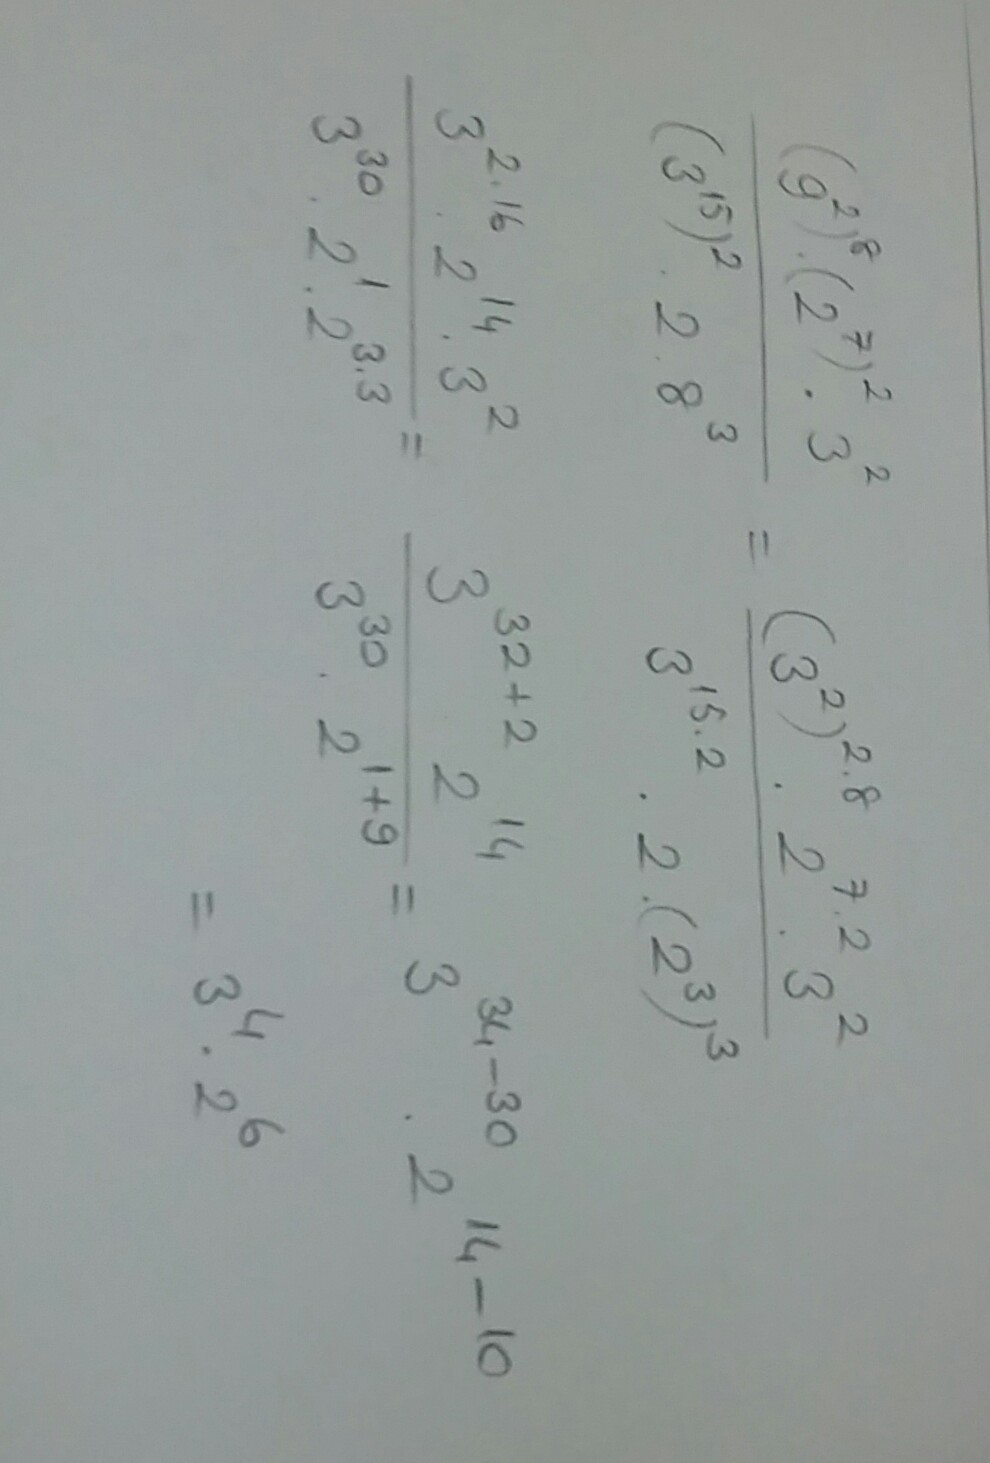 (9²)⁸·(2⁷)²·3² / (3¹⁵)²·2·8³ = (3²)²·⁸·2⁷·²·3² / 3¹⁵·²·2·(2³)³
3²·¹⁶·2¹⁴·3² / 3³⁰·2¹·2³·³ = 3³²⁺² 2¹⁴ / 3³⁰·2¹⁺⁹ = 3³⁴⁻³⁰·2¹⁴⁻¹⁰
= 3⁴·2⁶